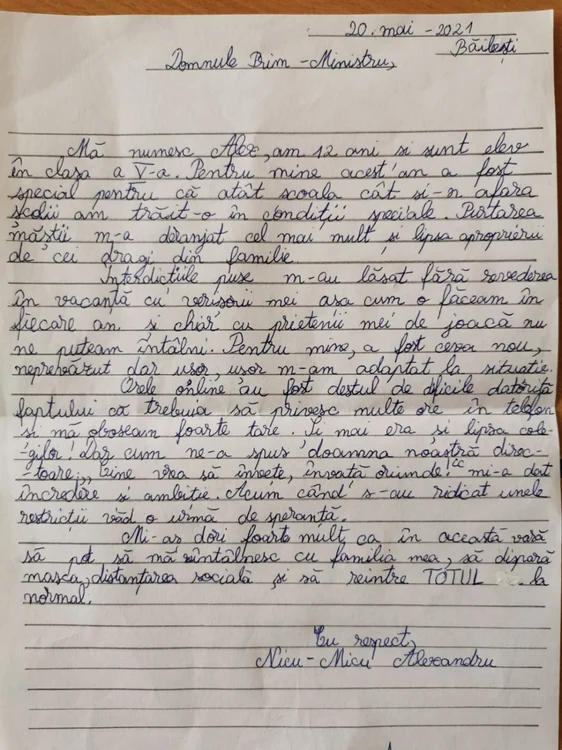 20. mai - 2021
Băilești
Domnule Prim - Ministru,
Mă numesc Alex, am 12 ani si sunt elev
în clasa a V-a. Pentru mine acest an a fost
special pentru că atât scoala cât si-n afara
scolii am trăit-o în condiții speciale. Purtarea
măștii m-a deranjat cel mai mult și lipsa apropierii
de cei dragi din familie.
Interdicțiile puse m-au lăsat fără revederea
în vacanță cu verisorii mei asa cum o făceam în
fiecare an si chiar cu prietenii mei de joacă nu
ne puteam întâlni. Pentru mine, a fost ceva nou,
neprevăzut dar usor, usor m-am adaptat la situatie.
Orele online au fost destul de dificile datorită
faptului că trebuia să privesc multe ore în telefon
si mă oboseam foarte tare. Si mai era și lipsa cole-
-gilor! Dar cum ne-a spus doamna noastră direc-
-toare,, Cine vrea să învețe, învată oriunde!" mi-a dat
încredere si ambitie. Acum când s-au ridicat unele
restricții văd o urmă de speranță.
Mi-as dori foarte mult, ca în această vară
să pot să mă întâlnesc cu familia mea, să dispară
masca, distanțarea socială și să reintre TOTUL la
normal.
Cu respect,
Nicu-Micu Alexandru